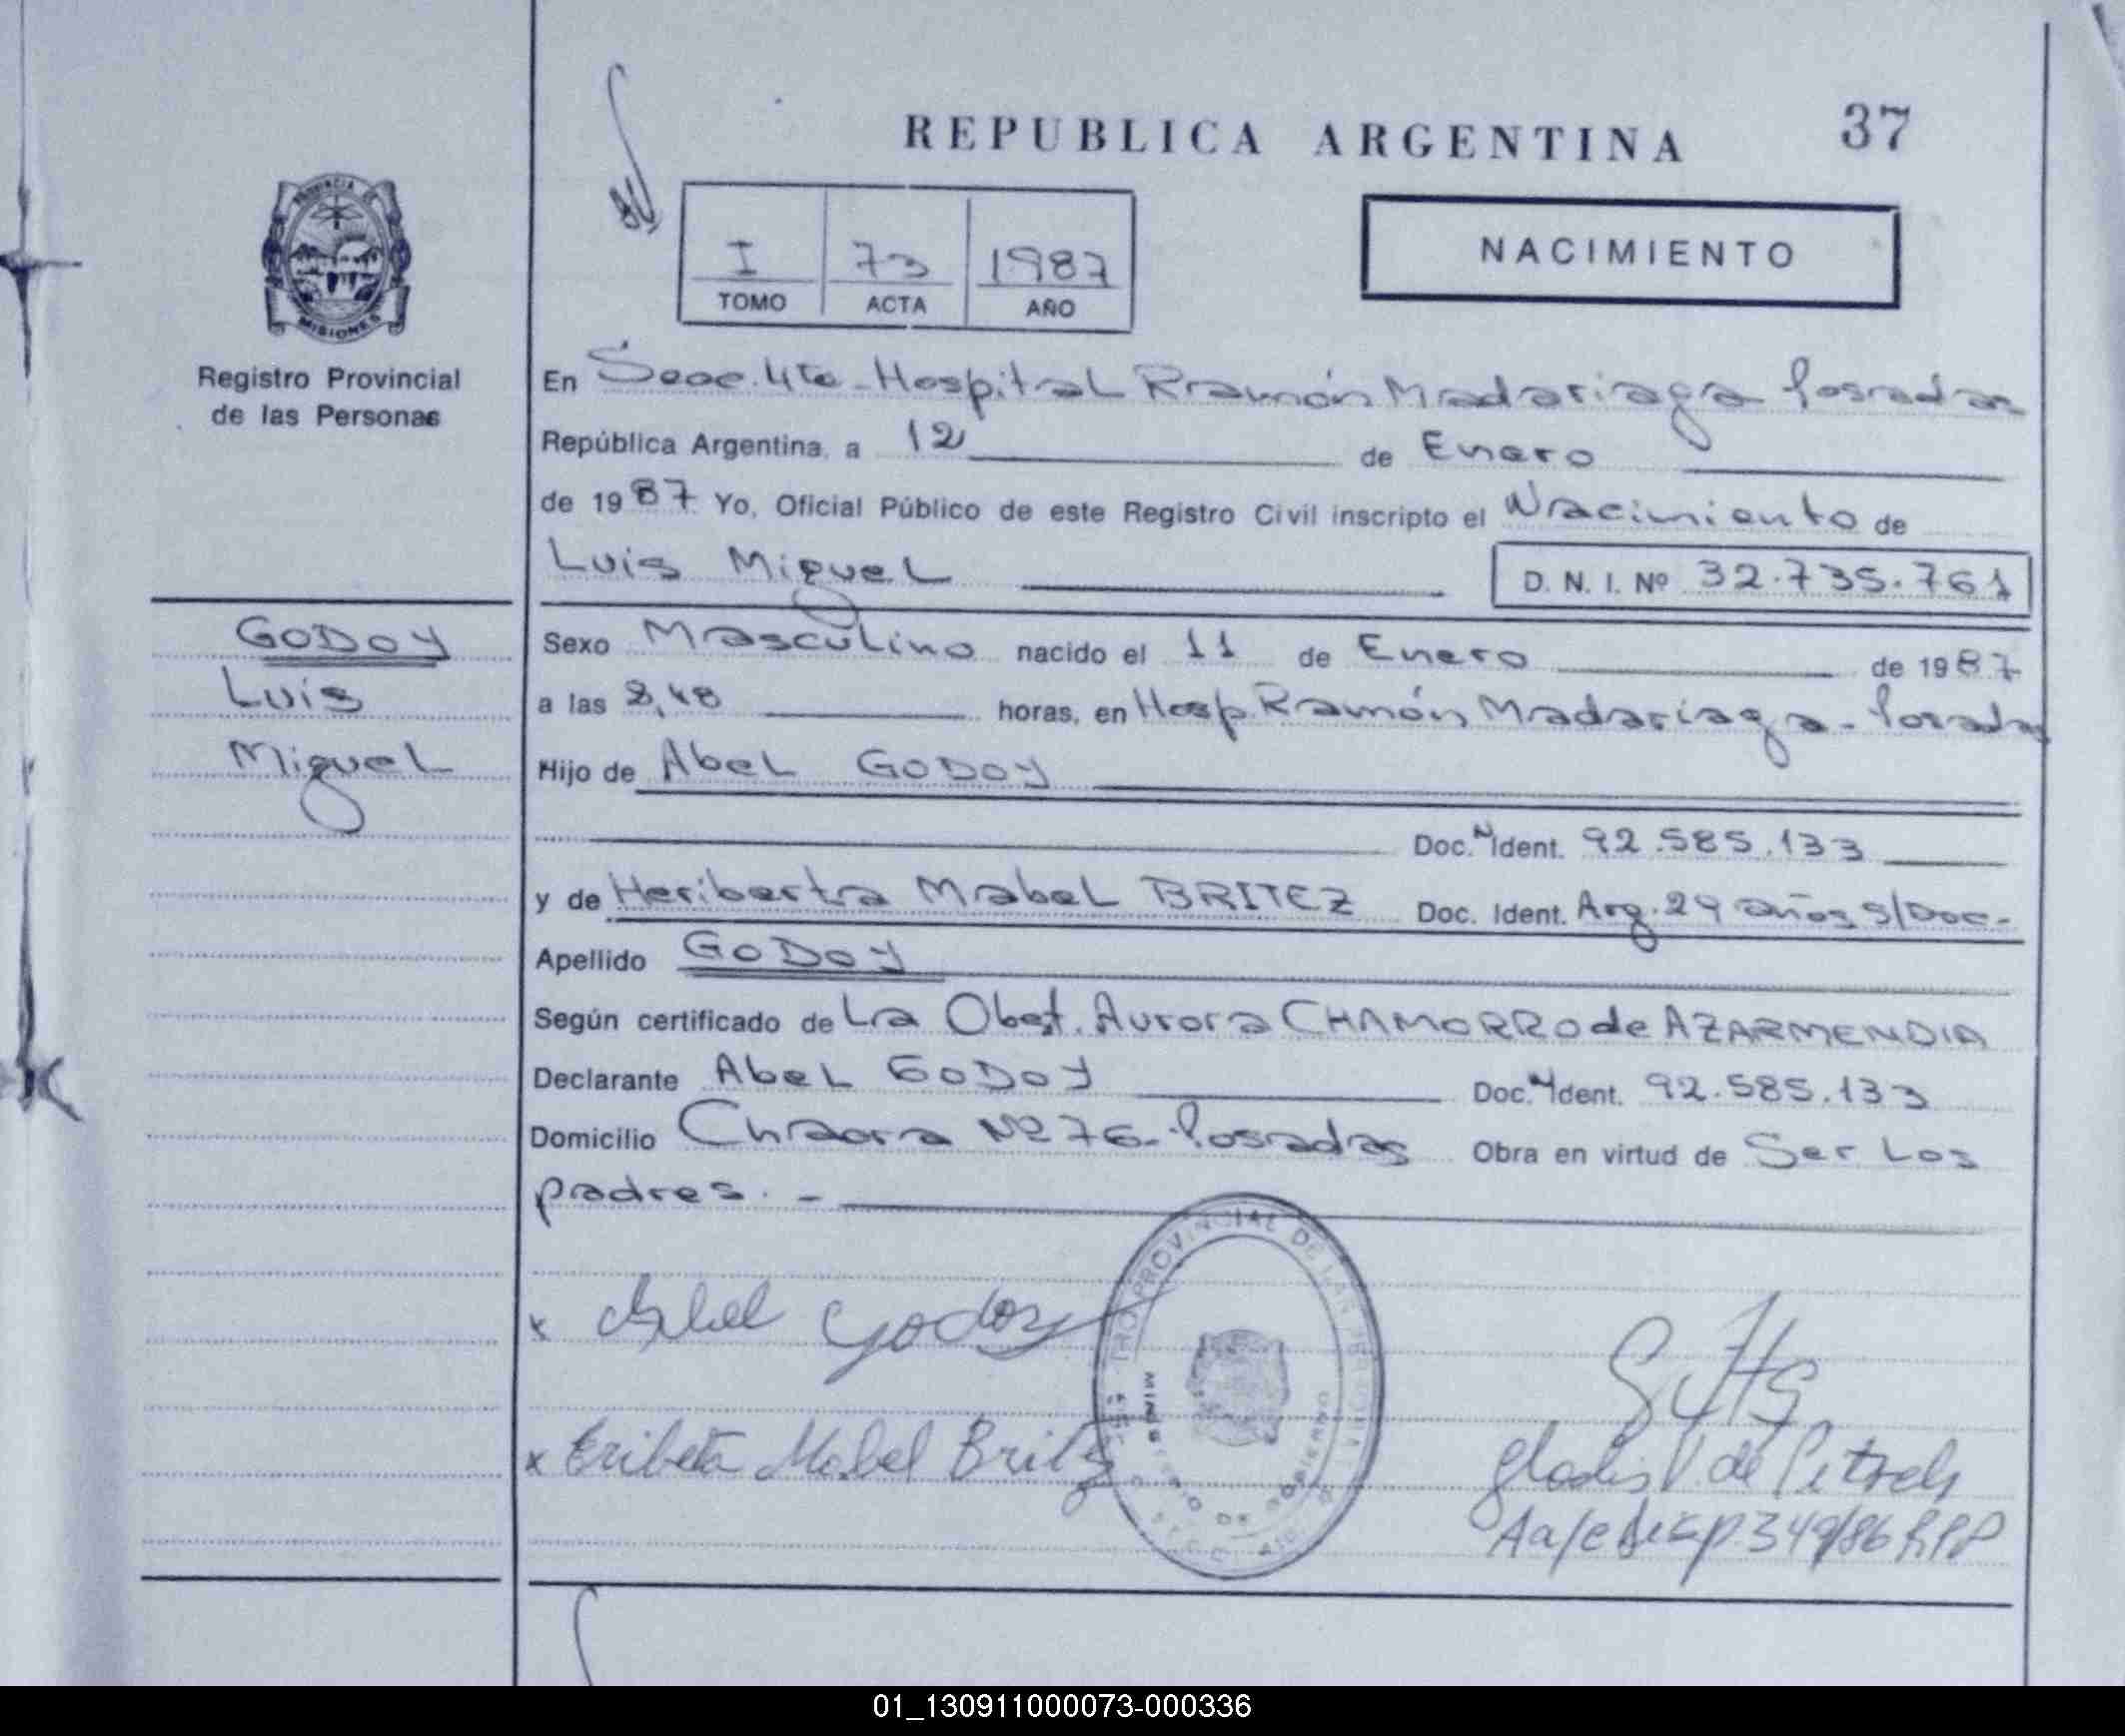 REPUBLICA ARGENTINA 37
I 73 1987
TOMO ACTA AÑO
NACIMIENTO
PROVINCIA DE
MISIONES
Registro Provincial
de las Personas
En Secc. 4ta - Hospital Ramón Madariaga Posadas
República Argentina, a 12 de Enero
de 1987 Yo, Oficial Público de este Registro Civil inscripto el Nacimiento de
Luis Miguel D. N. I. Nº 32.735.761
GODOY
Luis
Miguel
Sexo Masculino nacido el 11 de Enero de 1987
a las 8,48 horas, en Hosp. Ramón Madariaga - Posadas
Hijo de Abel GODOY
Doc. N Ident. 92.585.133
y de Heriberta Mabel BRITEZ Doc. Ident. Arg. 24 años s/Doc.-
Apellido GODOY
Según certificado de La Obst. Aurora CHAMORRO de AZARMENDIA
Declarante Abel GODOY Doc. N Ident. 92.585.133
Domicilio Chacra Nº 76 - Posadas Obra en virtud de Ser Los
padres. -
x Abel Godoy
x Eribeta Mabel Britez
Gladis V. de
349/86 RPP
PROVINCIAL DE LAS PERSONAS
MINISTERIO DE GOBIERNO
01_130911000073-000336